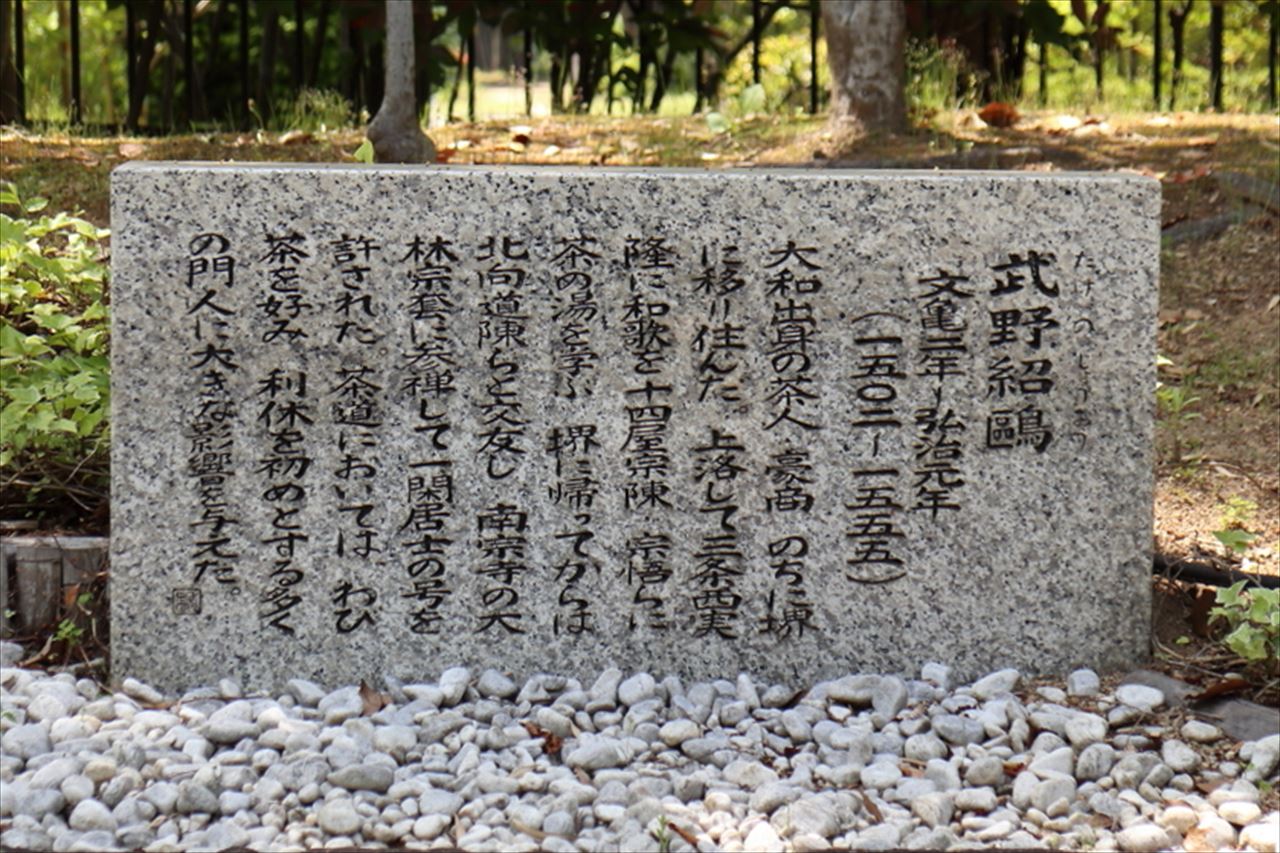 たけのじょうおう
武野紹鷗
文亀二年〜弘治元年
(一五〇二〜一五五五)
大和出身の茶人・豪商 のちに堺
に移り住んだ。上洛して三条西実
隆に和歌を 十四屋宗陳・宗悟らに
茶の湯を学ぶ 堺に帰ってからは
北向道陳らと交友し 南宗寺の大
林宗套に参禅して一閑居士の号を
許された。茶道においては わび
茶を好み 利休を初めとする多く
の門人に大きな影響を与えた。